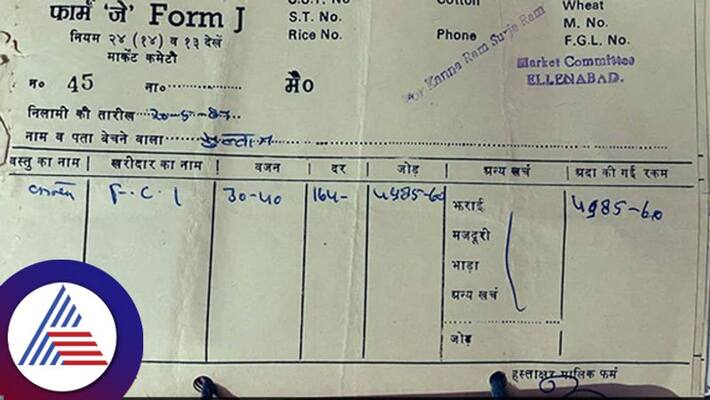 C.S.T. No Cotton Wheat
फार्म 'जे' Form J S.T. No. M. No.
नियम २४ (१४) व १३ देखें Rice No. Phone F.G.L. No.
मार्केट कमेटी
For Kanna Ram Surja Ram
Market Committee
ELLENABAD.
न० 45 ना० मै०
निलामी की तारीख 20-5-87
नाम व पता बेचने वाला
वस्तु का नाम खरीदार का नाम वजन दर जोड़ अन्य खर्च अदा की गई रकम
F.C.I 30-40 164- ५985-60 ५985-60
झराई
मजदूरी
भाड़ा
अन्य खर्च
जोड़
हस्ताक्षर मालिक फर्म